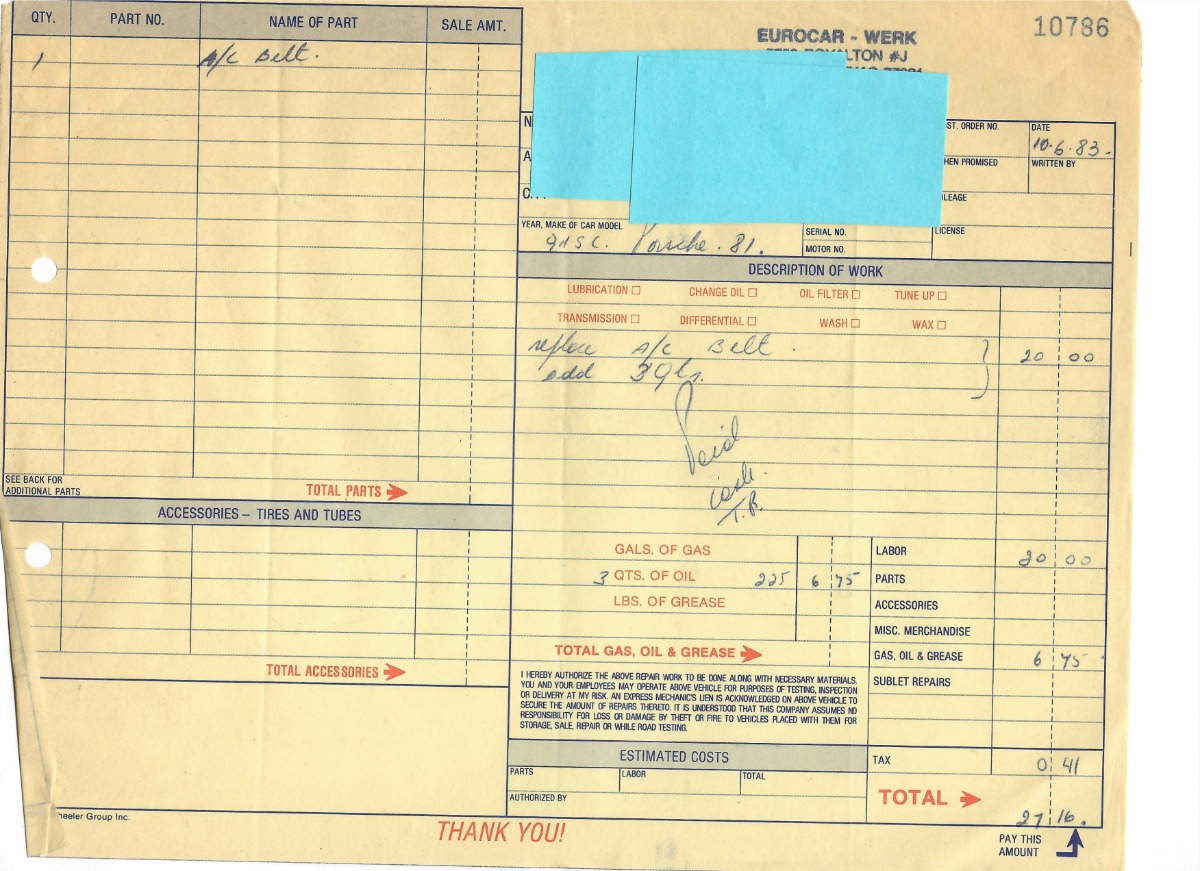 QTY. PART NO. NAME OF PART SALE AMT.
1 A/C Belt.
SEE BACK FOR
ADDITIONAL PARTS
TOTAL PARTS
ACCESSORIES – TIRES AND TUBES
TOTAL ACCESSORIES
heeler Group Inc.
10786
EUROCAR - WERK
LTON #J
N
A
ST. ORDER NO.
DATE
10-6-83-
HEN PROMISED
WRITTEN BY
LEAGE
YEAR, MAKE OF CAR MODEL
911SC. Porsche. 81.
SERIAL NO.
LICENSE
MOTOR NO.
DESCRIPTION OF WORK
LUBRICATION CHANGE OIL OIL FILTER TUNE UP
TRANSMISSION DIFFERENTIAL WASH WAX
replace A/C Belt. 20 00
add 3 qts.
Paid
cash
T.B.
GALS. OF GAS
3 QTS. OF OIL 225 6 75
LBS. OF GREASE
TOTAL GAS, OIL & GREASE
LABOR 20 00
PARTS
ACCESSORIES
MISC. MERCHANDISE
GAS, OIL & GREASE 6 75
SUBLET REPAIRS
I HEREBY AUTHORIZE THE ABOVE REPAIR WORK TO BE DONE ALONG WITH NECESSARY MATERIALS.
YOU AND YOUR EMPLOYEES MAY OPERATE ABOVE VEHICLE FOR PURPOSES OF TESTING, INSPECTION
OR DELIVERY AT MY RISK. AN EXPRESS MECHANIC'S LIEN IS ACKNOWLEDGED ON ABOVE VEHICLE TO
SECURE THE AMOUNT OF REPAIRS THERETO. IT IS UNDERSTOOD THAT THIS COMPANY ASSUMES NO
RESPONSIBILITY FOR LOSS OR DAMAGE BY THEFT OR FIRE TO VEHICLES PLACED WITH THEM FOR
STORAGE, SALE, REPAIR OR WHILE ROAD TESTING.
ESTIMATED COSTS
PARTS LABOR TOTAL
AUTHORIZED BY
TAX 0 41
TOTAL 27 16.
THANK YOU!
PAY THIS
AMOUNT